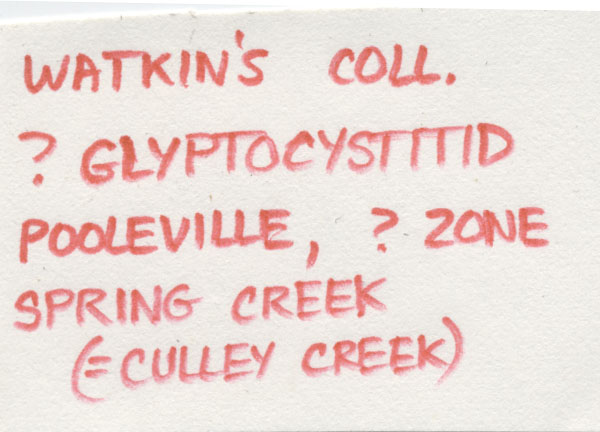 WATKIN'S COLL.
? GLYPTOCYSTITID
POOLEVILLE, ? ZONE
SPRING CREEK
(=CULLEY CREEK)